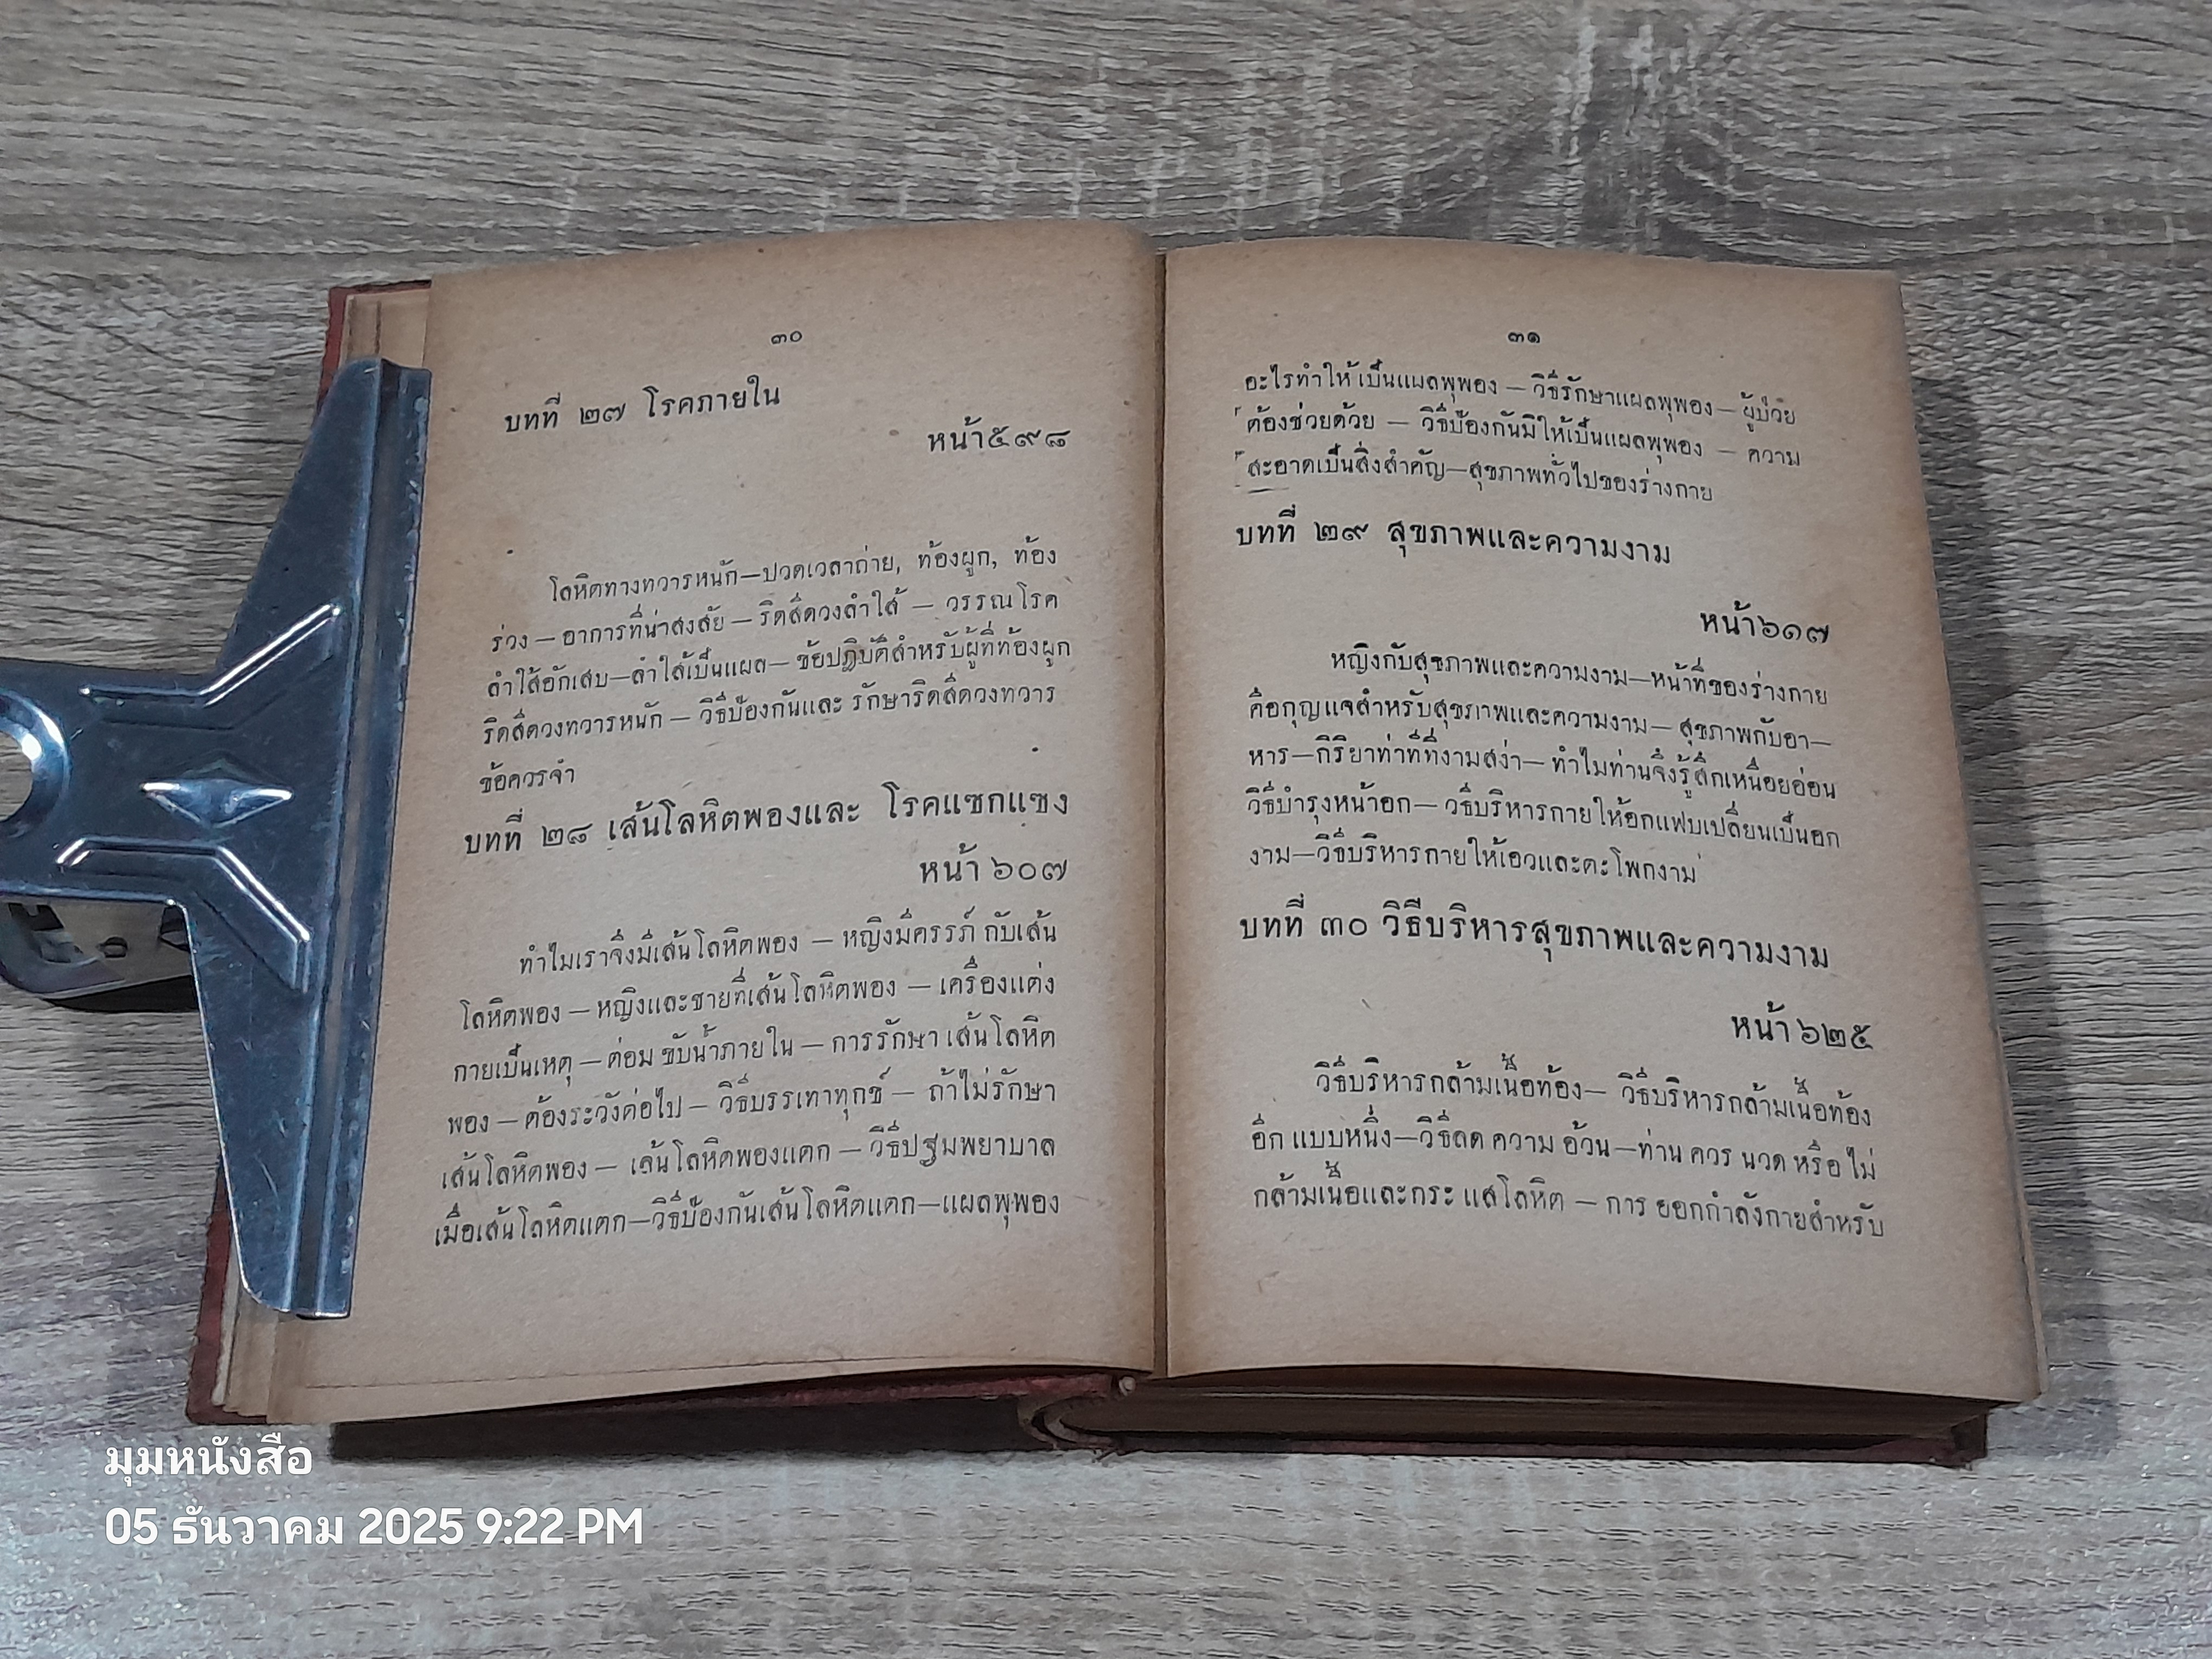 ๓๐
บทที่ ๒๗ โรคภายใน
หน้า๕๙๘
โลหิตทางทวารหนัก—ปวดเวลาถ่าย, ท้องผูก, ท้อง
ร่วง — อาการที่น่าสงสัย — ริดสีดวงลำไส้ — วรรณโรค
ลำไส้อักเสบ—ลำไส้เป็นแผล—ข้อปฏิบัติสำหรับผู้ที่ท้องผูก
ริดสีดวงทวารหนัก — วิธีป้องกันและ รักษาริดสีดวงทวาร
ข้อควรจำ
บทที่ ๒๘ เส้นโลหิตพองและ โรคแซกแซง
หน้า ๖๐๗
ทำไมเราจึงมีเส้นโลหิตพอง — หญิงมีครรภ์ กับเส้น
โลหิตพอง — หญิงและชายที่เส้นโลหิตพอง — เครื่องแต่ง
กายเป็นเหตุ — ต่อม ขับน้ำภายใน — การรักษา เส้นโลหิต
พอง — ต้องระวังต่อไป — วิธีบรรเทาทุกข์ — ถ้าไม่รักษา
เส้นโลหิตพอง — เส้นโลหิตพองแตก — วิธีปฐมพยาบาล
เมื่อเส้นโลหิตแตก—วิธีป้องกันเส้นโลหิตแตก—แผลพุพอง
๓๑
อะไรทำให้ เป็นแผลพุพอง — วิธีรักษาแผลพุพอง— ผู้ป่วย
ต้องช่วยด้วย — วิธีป้องกันมิให้เป็นแผลพุพอง — ความ
สะอาดเป็นสิ่งสำคัญ—สุขภาพทั่วไปของร่างกาย
บทที่ ๒๙ สุขภาพและความงาม
หน้า๖๑๗
หญิงกับสุขภาพและความงาม—หน้าที่ของร่างกาย
คือกุญแจสำหรับสุขภาพและความงาม— สุขภาพกับอา—
หาร—กิริยาท่าทีที่งามสง่า— ทำไมท่านจึงรู้สึกเหนื่อยอ่อน
วิธีบำรุงหน้าอก— วิธีบริหารกายให้อกแฟบเปลี่ยนเป็นอก
งาม—วิธีบริหารกายให้เอวและตะโพกงาม
บทที่ ๓๐ วิธีบริหารสุขภาพและความงาม
หน้า ๖๒๕
วิธีบริหารกล้ามเนื้อท้อง— วิธีบริหารกล้ามเนื้อท้อง
อีก แบบหนึ่ง—วิธีลด ความ อ้วน —ท่าน ควร นวด หรือ ไม่
กล้ามเนื้อและกระ แสโลหิต — การ ออกกำลังกายสำหรับ
มุมหนังสือ
05 ธันวาคม 2025 9:22 PM